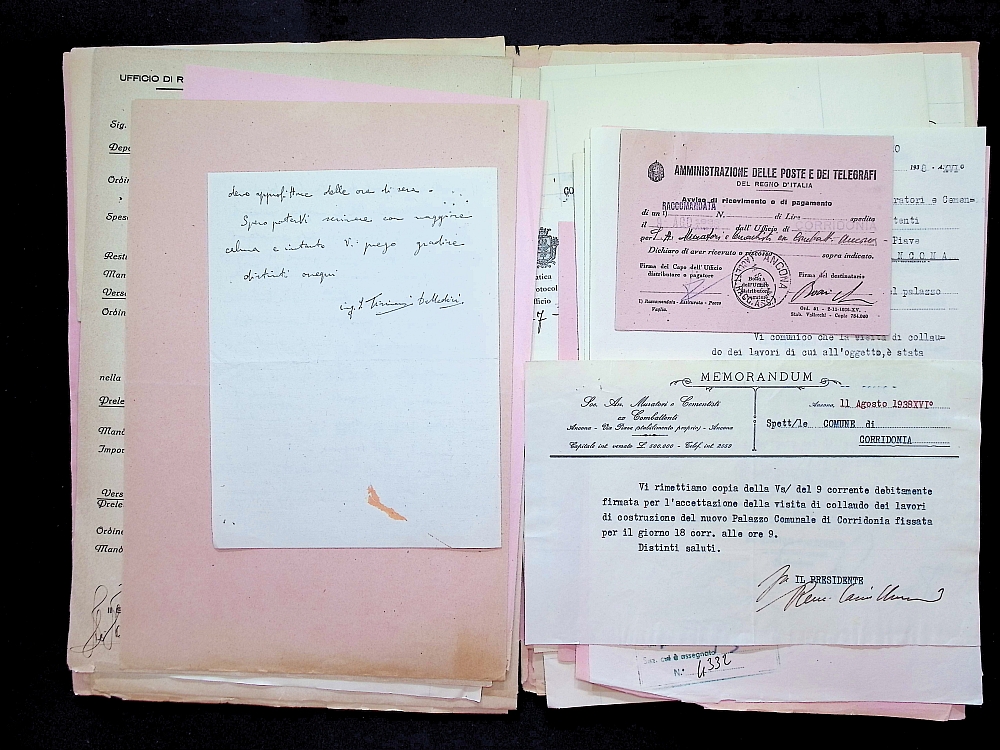 UFFICIO DI R
Sig.
Depo
Ordin
Spese
Resta
Man
Verso
Ordin
nella
Prele
Mand
Impor
Vers
Prele
Ordin
Mand
devo approfittare delle ore di sera.
Spero poterti scrivere con maggiore
calma e intanto Vi prego gradire
distinti ossequi
ing.
CO
tica
rotocol
ficio
7 -
O
1938 - XVI°
ratori e Cemen=
tenti
Piave
ANCONA
l palazzo
Vi comunico che la visita di collau=
do dei lavori di cui all'oggetto, è stata
AMMINISTRAZIONE DELLE POSTE E DEI TELEGRAFI
DEL REGNO D'ITALIA
Avviso di ricevimento o di pagamento
RACCOMANDATA
di un 1) N. di Lire spedito
il dall'Ufficio di
per S. A. Muratori e Cementisti ex Combatt. Ancona
Dichiaro di aver ricevuto o riscosso sopra indicato.
Firma del Capo dell'Ufficio
distributore o pagatore
Firma del destinatario
ANCONA
Bollo
dell'Ufficio
distributore
1) Raccomandata - Assicurata - Pacco
Vaglia.
MEMORANDUM
Soc. An. Muratori e Cementisti
ex Combattenti
Ancona - Via Piave (stabilimento proprio) - Ancona
Capitale int. versato L. 500.000 - Telef. int. 2559
Ancona, 11 Agosto 1938XVI°
Spett/le COMUNE di
CORRIDONIA
Vi rimettiamo copia della Vs/ del 9 corrente debitamente
firmata per l'accettazione della visita di collaudo dei lavori
di costruzione del nuovo Palazzo Comunale di Corridonia fissata
per il giorno 18 corr. alle ore 9.
Distinti saluti.
IL PRESIDENTE
è assegnato
N.° 4332